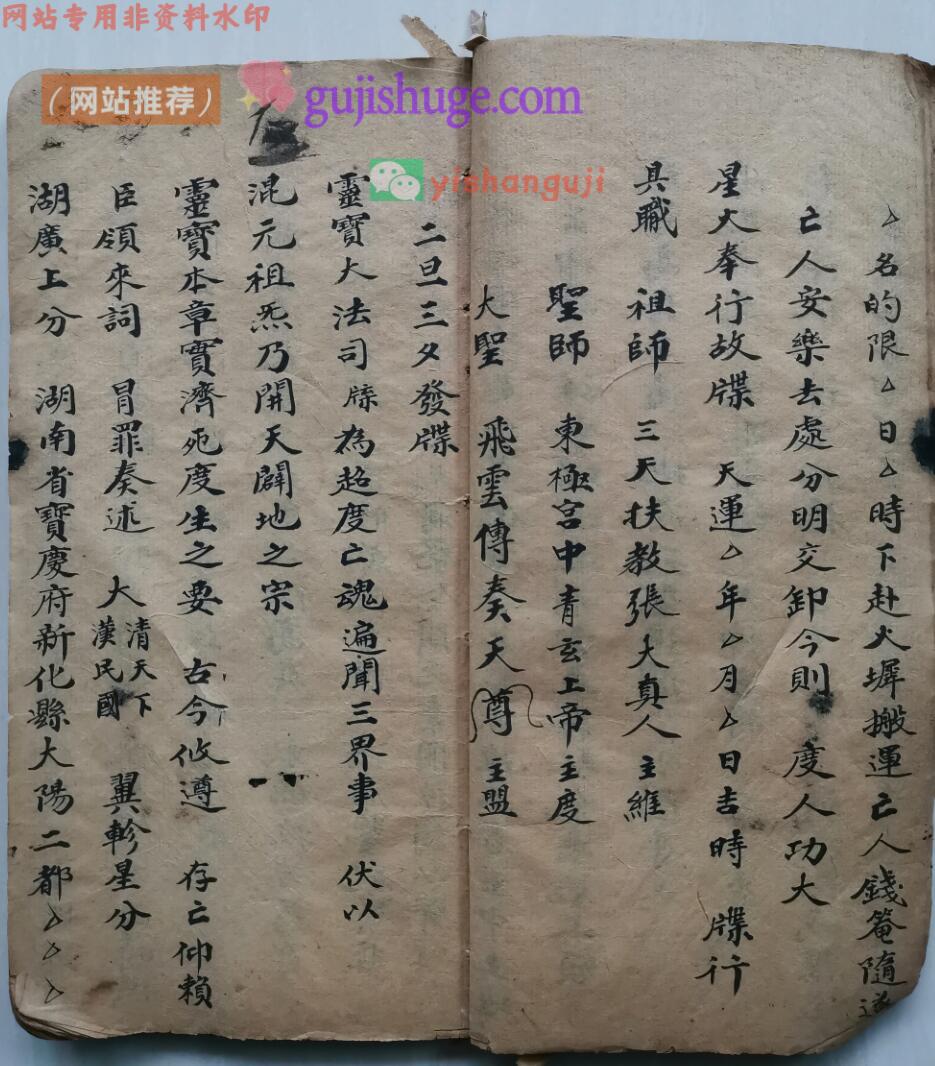 网站专用非资料水印
（网站推荐）
gujishuge.com
yishanguji
厶名的限厶日厶時下赴火墀搬運亡人錢篭隨送
亡人安樂去處分明交卸今則 度人功大
星火奉行故牒 天運厶年厶月厶日吉時 牒行
具職 祖師 三天扶教張大真人主維
聖師 東極宮中青玄上帝主度
大聖 飛雲傳奏天尊主盟
二旦三夕發牒
靈寶大法司 牒為超度亡魂遍聞三界事 伏以
混元祖炁乃開天闢地之宗
靈寶本章實濟死度生之要 古今攸遵 存亡仰賴
臣領來詞 冒罪奏述 大清天下漢民國 翼軫星分
湖廣上分 湖南省寶慶府新化縣大陽二都厶厶厶